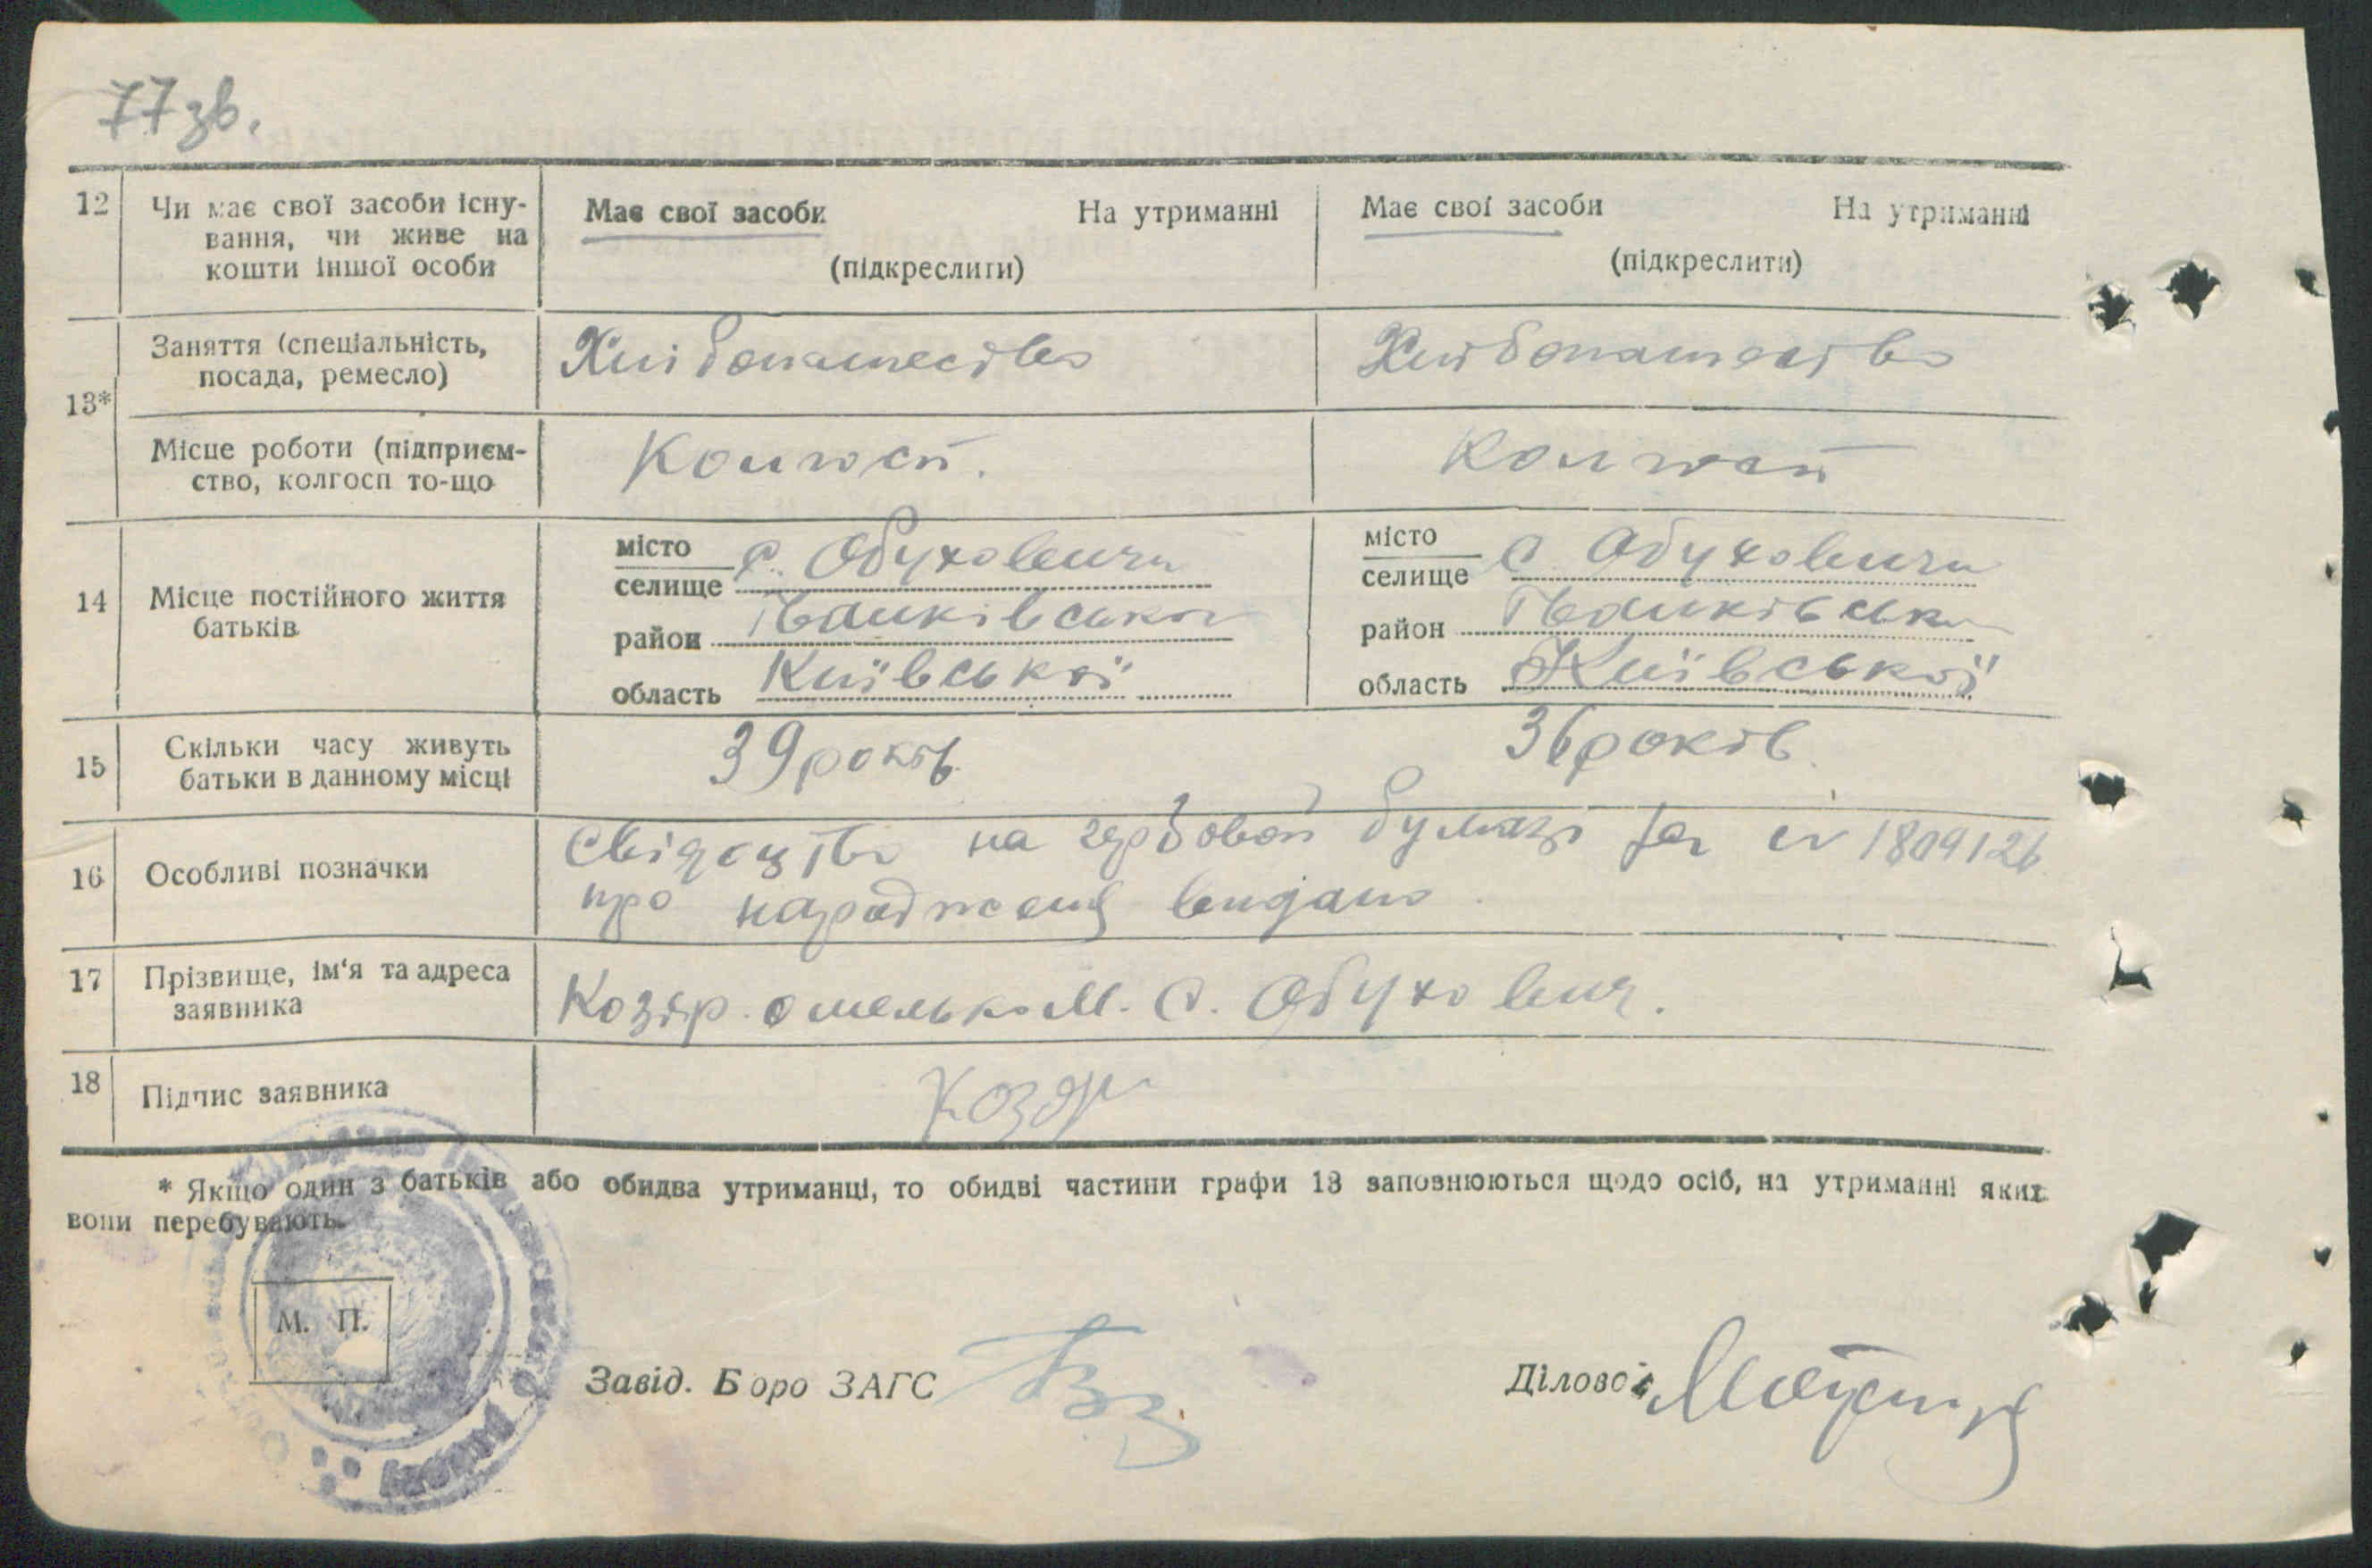 77 зв.
12 Чи має свої засоби існу- Має свої засоби На утриманні Має свої засоби На утриманні
вання, чи живе на
кошти іншої особи (підкреслити) (підкреслити)
13* Заняття (спеціальність, Хлібопашество Хлібопашество
посада, ремесло)
Місце роботи (підприєм- Колгосп. Колгосп
ство, колгосп то-що
14 Місце постійного життя місто с. Обуховичи місто с Обуховичи
батьків селище селище
район Іванківського район Іванківсько
область Київської область Київської
15 Скільки часу живуть 39 років 36 років
батьки в данному місці
16 Особливі позначки Свідоцтво на гербовой бумазі за 1809126
про народженя видано
17 Прізвище, ім'я та адреса Козяр Омелько М. С. Обухович.
заявника
18 Підпис заявника Козяр
* Якщо один з батьків або обидва утриманці, то обидві частини графи 13 заповнюються щодо осіб, на утриманні яких
вони перебувають.
М. П.
Завід. Бюро ЗАГС Діловод